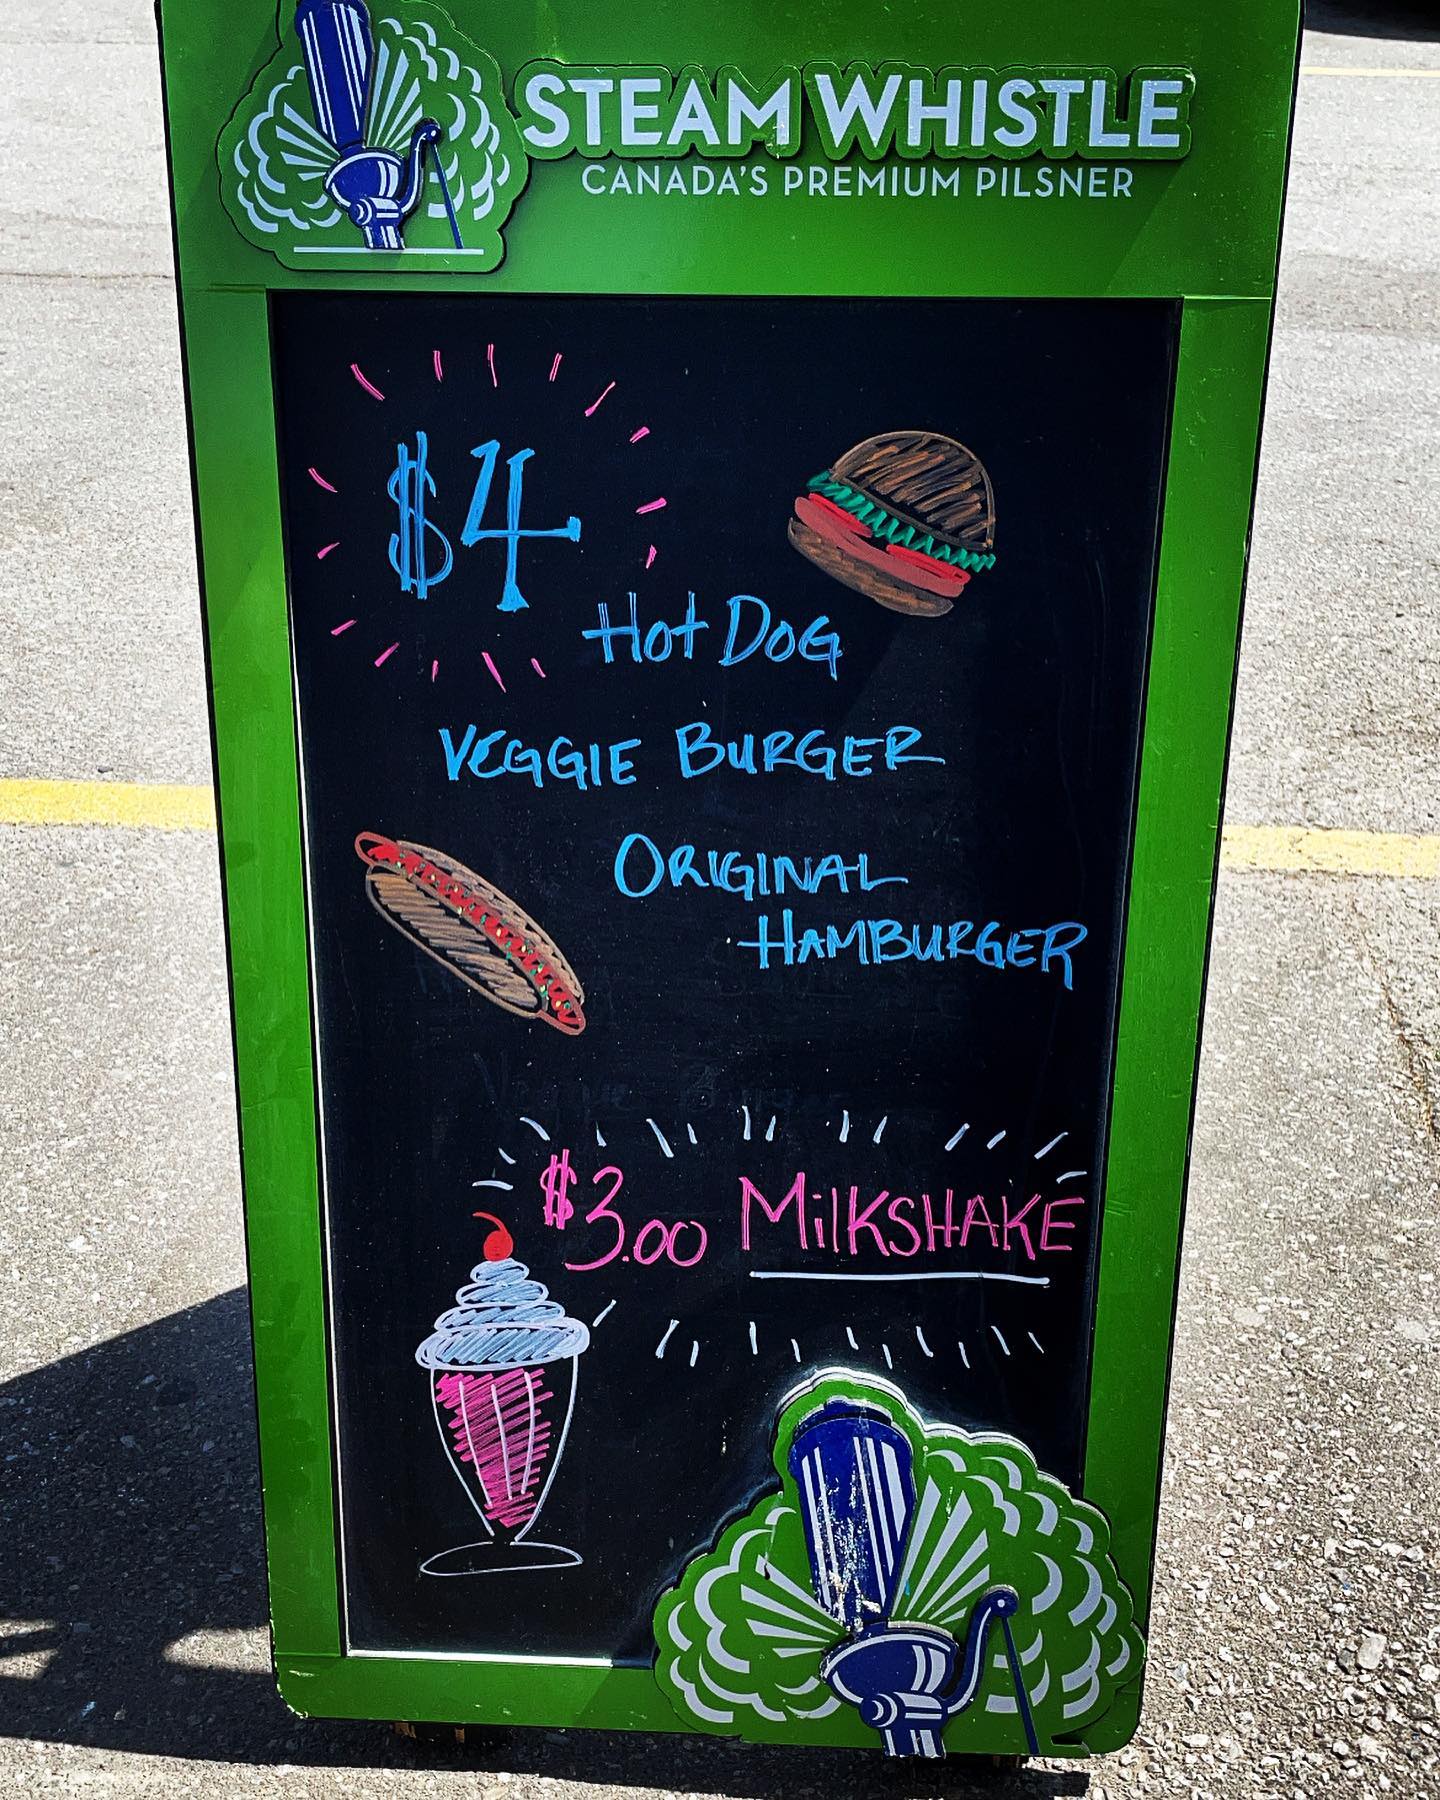 STEAM WHISTLE
CANADA'S PREMIUM PILSNER
$4
Hot Dog
VEGGIE BURGER
ORIGINAL
HAMBURGER
$3.00 MilKSHAKE